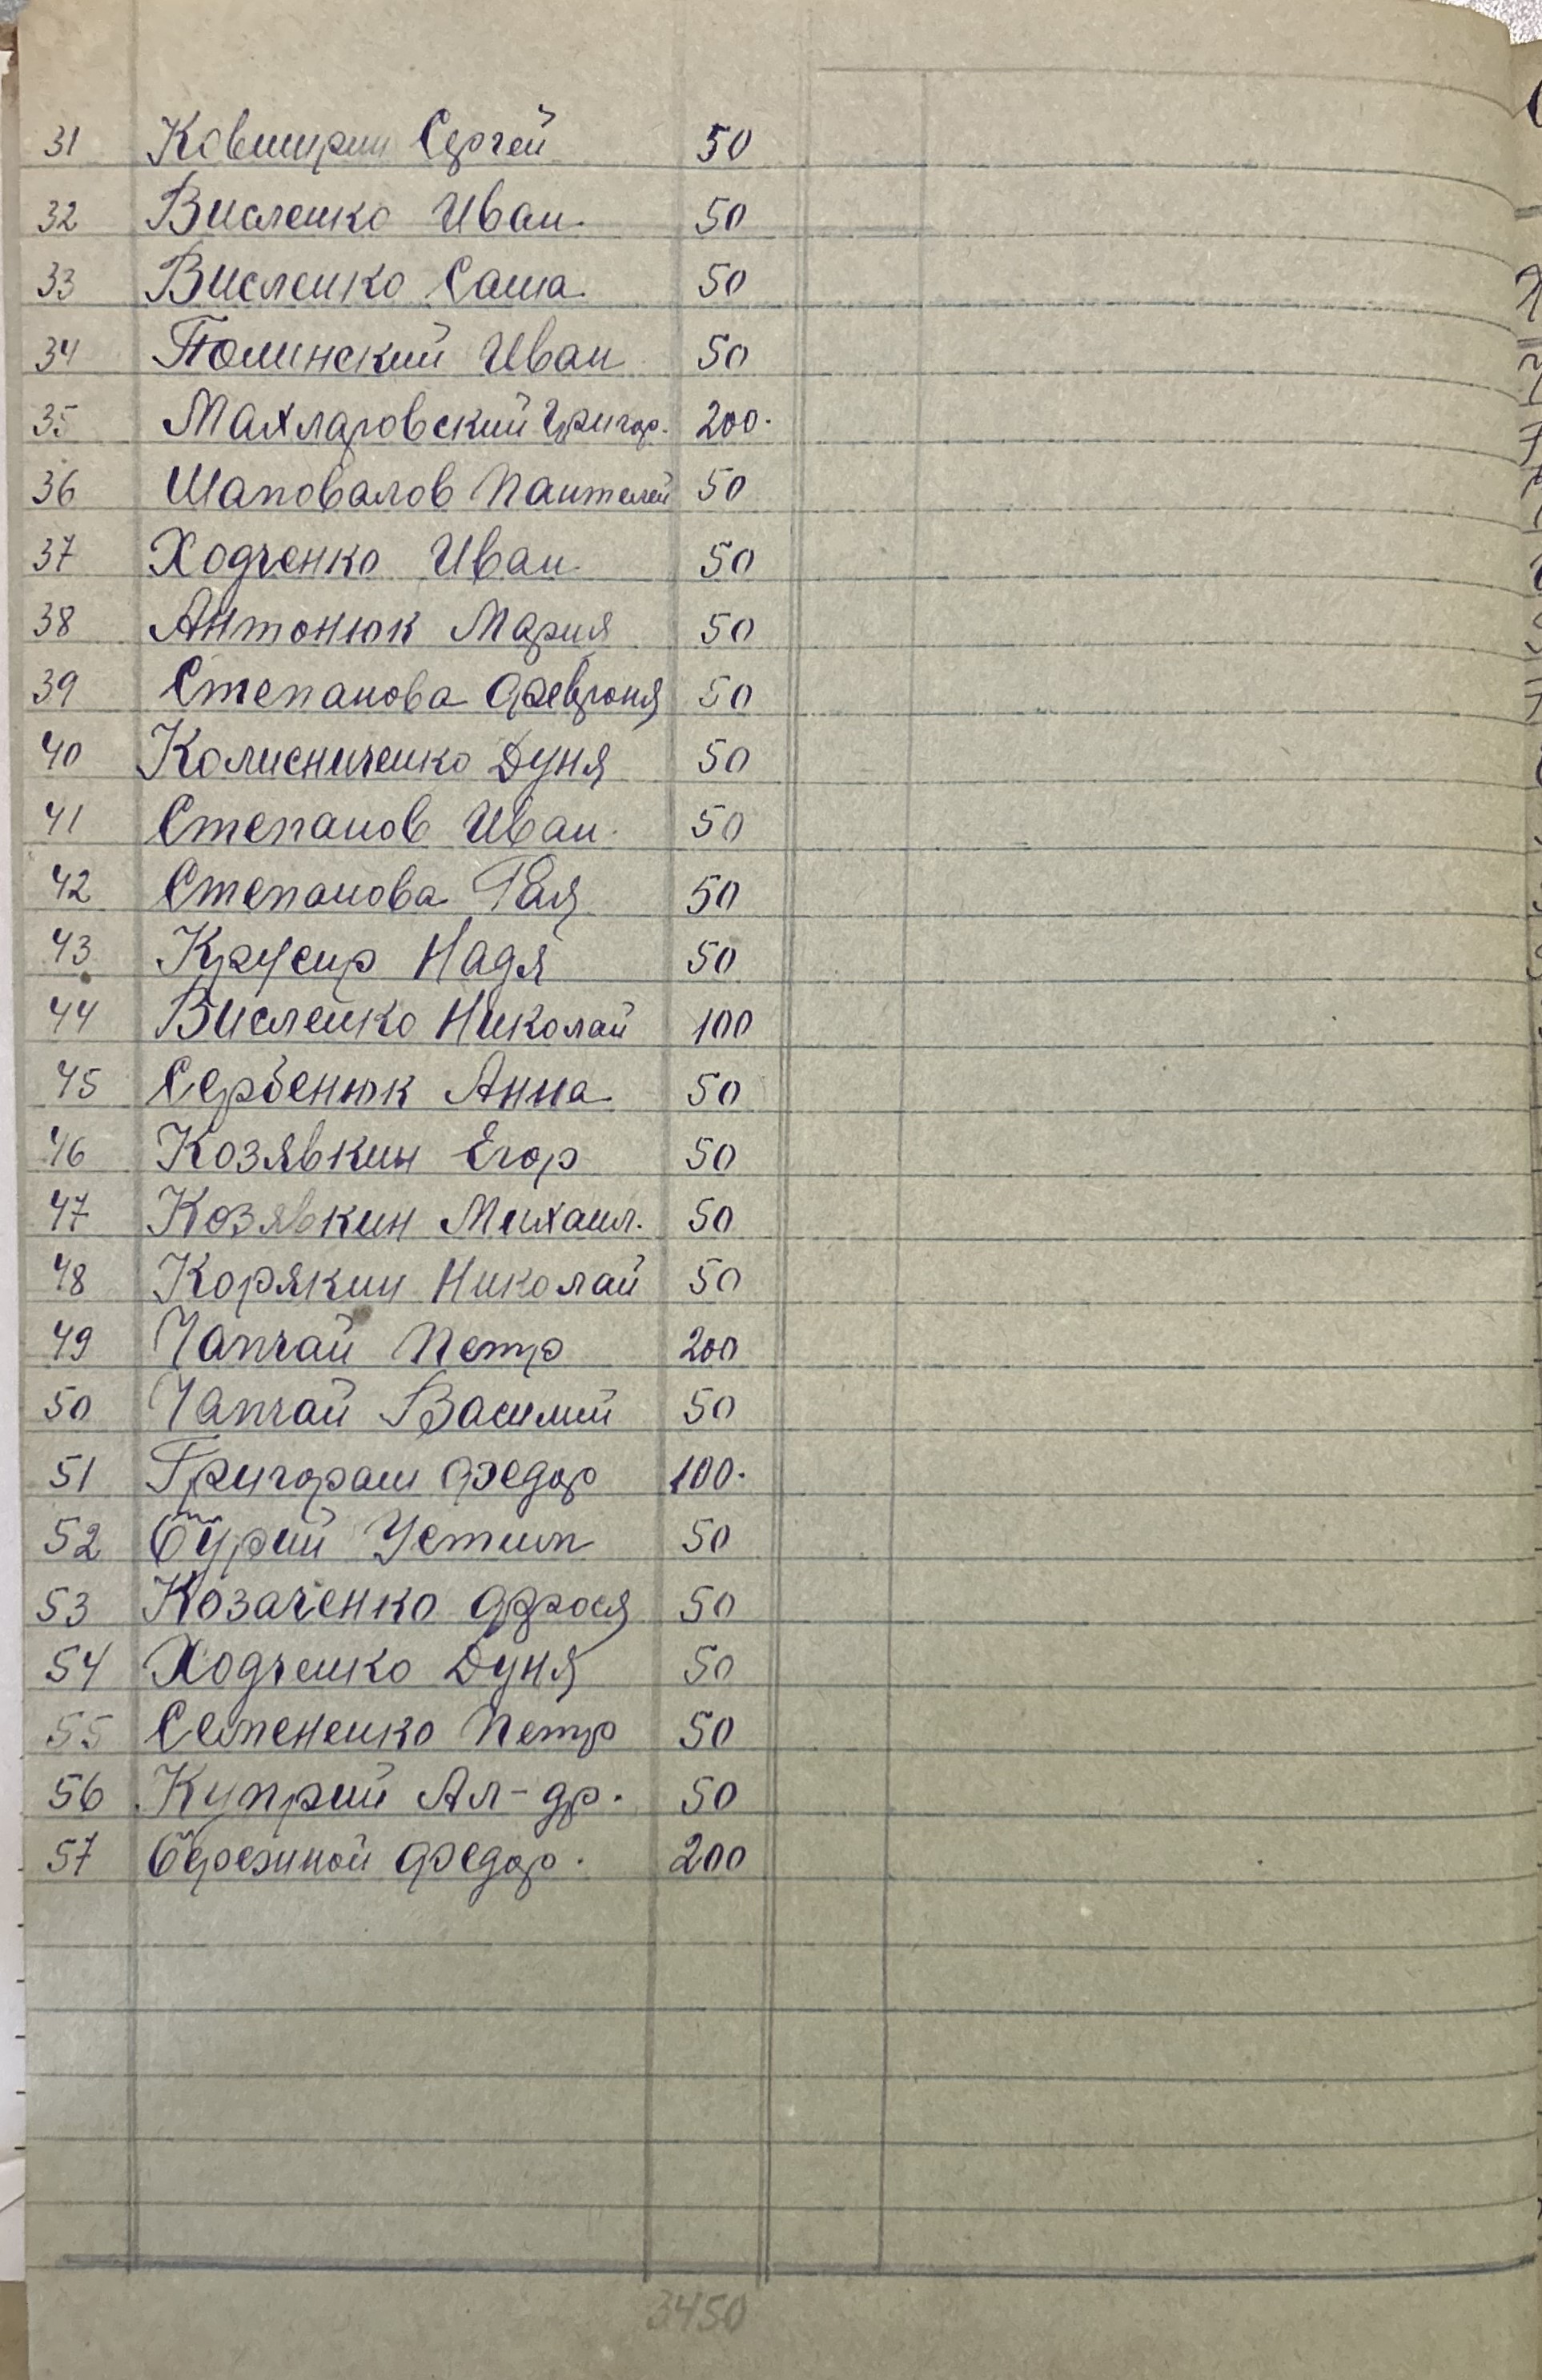 31 Ковширин Сергей 50
32 Висленко Иван. 50
33 Висленко Саша. 50
34 Полинский Иван 50
35 Махларовский Григор. 200.
36 Шаповалов Пантелей 50
37 Ходченко Иван. 50
38 Антонюк Мария 50
39 Степанова Феврония 50
40 Колисниченко Дуня 50
41 Степанов Иван. 50
42 Степанова Рая 50
43 Крусир Надя 50
44 Висленко Николай 100
45 Сербенюк Анна. 50
46 Козявкин Егор 50
47 Козявкин Михаил. 50
48 Корякин Николай 50
49 Чапчай Петр 200
50 Чапчай Василий 50
51 Григораш Федор 100.
52 Бурий Устим 50
53 Козаченко Фрося 50
54 Ходченко Дуня 50
55 Семененко Петр 50
56 Куприй Ал-др. 50
57 Бережной Федор. 200
3450